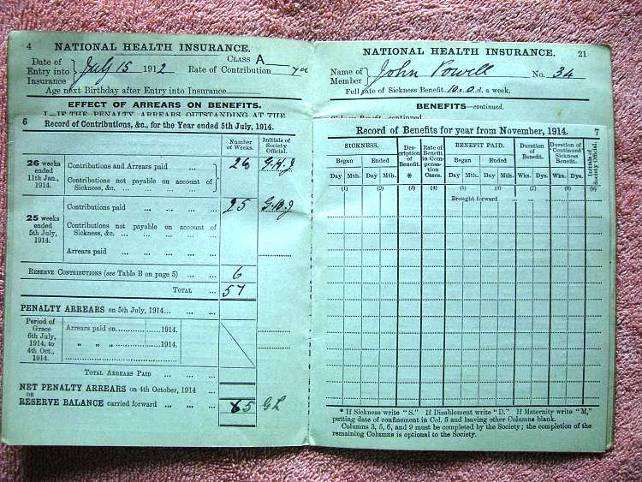 4 NATIONAL HEALTH INSURANCE.
Date of Entry into Insurance } July 15 1912 CLASS A
Rate of Contribution
Age next Birthday after Entry into Insurance
EFFECT OF ARREARS ON BENEFITS.
I.—IF THE PENALTY ARREARS OUTSTANDING AT THE
6 Record of Contributions, &c., for the Year ended 5th July, 1914.
Number of Weeks. Initials of Society Official.
26 weeks ended 11th Jan., 1914.
Contributions and Arrears paid ... 26 G.H.J.
Contributions not payable on account of Sickness, &c. ... ... ... ...
25 weeks ended 5th July, 1914.
Contributions paid ... ... ... 25
Contributions not payable on account of Sickness, &c. ... ... ... ...
Arrears paid ... ... ... ...
RESERVE CONTRIBUTIONS (see Table B on page 5) ... ... 6
TOTAL ... 57
PENALTY ARREARS on 5th July, 1914... ... ...
Period of Grace 6th July, 1914, to 4th Oct., 1914.
Arrears paid on 1914.
" " " 1914.
1914.
TOTAL ARREARS PAID ... ... ...
NET PENALTY ARREARS on 4th October, 1914
OR
RESERVE BALANCE carried forward ... ... ... 5
NATIONAL HEALTH INSURANCE. 21
Name of Member } John Powell No. 34
Full rate of Sickness Benefit 10.0 d. a week.
BENEFITS—continued.
Record of Benefits for year from November, 1914. 7
SICKNESS. Description of Benefit. * Rate of Benefit in Compensation Cases. BENEFIT PAID. Duration of Benefit. Duration of Continued Sickness Benefit. Initials of Society Official.
Began Ended Began Ended
Day Mth. Day Mth. Day Mth. Day Mth. Wks. Dys. Wks. Dys.
(1) (2) (3) (4) (5) (6) (7) (8) (9)
Brought forward ... ...
* If Sickness write "S." If Disablement write "D." If Maternity write "M,"
putting date of confinement in Col. 5 and leaving other Columns blank.
Columns 3, 5, 6, and 9 must be completed by the Society; the completion of the
remaining Columns is optional to the Society.